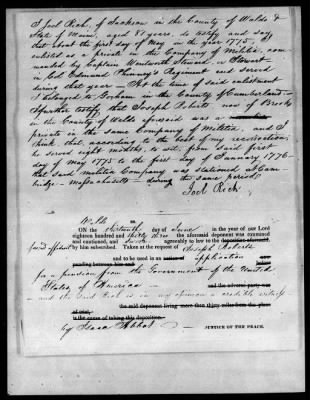 I Joel Rich, of Jackson in the County of Waldo &
State of Maine, aged 81 years, do testify and say
that about the first day of May in the year 1775, I
enlisted as a private in the Company of Militia, com-
manded by Captain Wentworth Steward, or Stewart
in Col. Edmund Phinney's Regiment and served
during that year — At the time of said enlistment
I belonged to Gorham in said County of Cumberland —
I further testify that Joseph Roberts now of Brooks
in the County of Waldo aforesaid was a
private in the same Company of Militia, and I
think that, according to the best of my recollection,
he served eight months, to wit, from said first
day of May 1775 to the first day of January 1776 —
that said militia Company was stationed at Cam-
bridge - Massachusetts — during the same period
Joel Rich
Waldo ss.
ON the sixteenth day of June in the year of our Lord
eighteen hundred and thirty three the aforesaid deponent was examined
and cautioned, and sworn agreeably to law to the deposition aforesaid,
by him subscribed. Taken at the request of Joseph Roberts
and to be used in an action application now
pending between him and
for a pension from the Government of the United
States of America — and the adverse party was
and the said Rich is in my opinion a credible witness
the said deponent living more than thirty miles from the place
of trial,
is the cause of taking this deposition.
by Isaac Abbot JUSTICE OF THE PEACE.